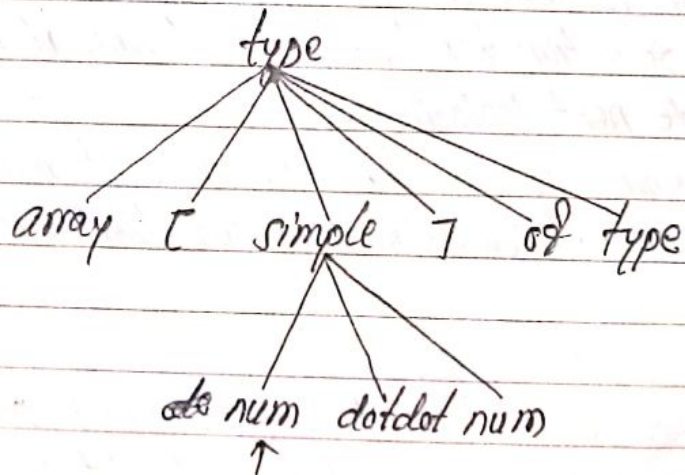 type
array [ simple ] of type
num dotdot num
↑